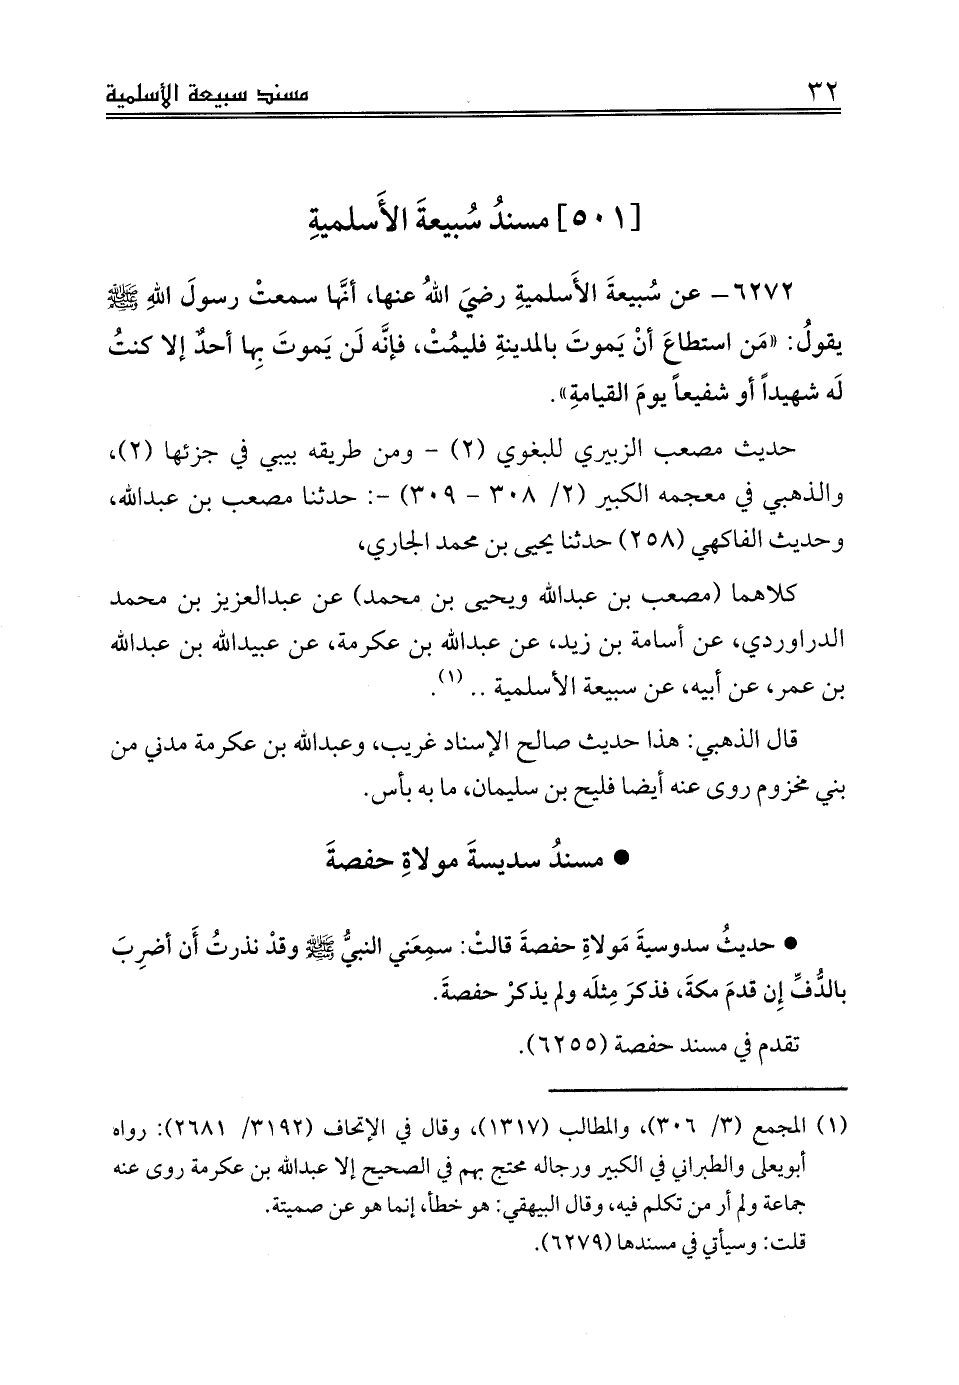 ٣٢
مسند سبيعة الأسلمية
[٥٠١] مسندُ سُبيعةَ الأَسلميةِ
٦٢٧٢- عن سُبيعةَ الأَسلميةِ رضيَ اللهُ عنها، أنَّها سمعتْ رسولَ اللهِ ﷺ
يقولُ: «مَن استطاعَ أنْ يَموتَ بالمدينةِ فليمُتْ، فإنَّه لَن يَموتَ بِها أحدٌ إلا كنتُ
لَه شهيداً أو شفيعاً يومَ القيامةِ».
حديث مصعب الزبيري للبغوي (٢) - ومن طريقه بيبي في جزئها (٢)،
والذهبي في معجمه الكبير (٢/ ٣٠٨ - ٣٠٩) -: حدثنا مصعب بن عبدالله،
وحديث الفاكهي (٢٥٨) حدثنا يحيى بن محمد الجاري،
كلاهما (مصعب بن عبدالله ويحيى بن محمد) عن عبدالعزيز بن محمد
الدراوردي، عن أسامة بن زيد، عن عبدالله بن عكرمة، عن عبيدالله بن عبدالله
بن عمر، عن أبيه، عن سبيعة الأسلمية .. (١).
قال الذهبي: هذا حديث صالح الإسناد غريب، وعبدالله بن عكرمة مدني من
بني مخزوم روى عنه أيضا فليح بن سليمان، ما به بأس.
● مسندُ سديسةَ مولاةِ حفصةَ
● حديثُ سدوسيةَ مَولاةِ حفصةَ قالتْ: سمِعَني النبيُّ ﷺ وقدْ نذرتُ أَن أضرِبَ
بالدُّفِّ إِن قدمَ مكةَ، فذكرَ مِثلَه ولم يذكرْ حفصةَ.
تقدم في مسند حفصة (٦٢٥٥).
(١) المجمع (٣/ ٣٠٦)، والمطالب (١٣١٧)، وقال في الإتحاف (٣١٩٢/ ٢٦٨١): رواه
أبويعلى والطبراني في الكبير ورجاله محتج بهم في الصحيح إلا عبدالله بن عكرمة روى عنه
جماعة ولم أر من تكلم فيه، وقال البيهقي: هو خطأ، إنما هو عن صميتة.
قلت: وسيأتي في مسندها (٦٢٧٩).